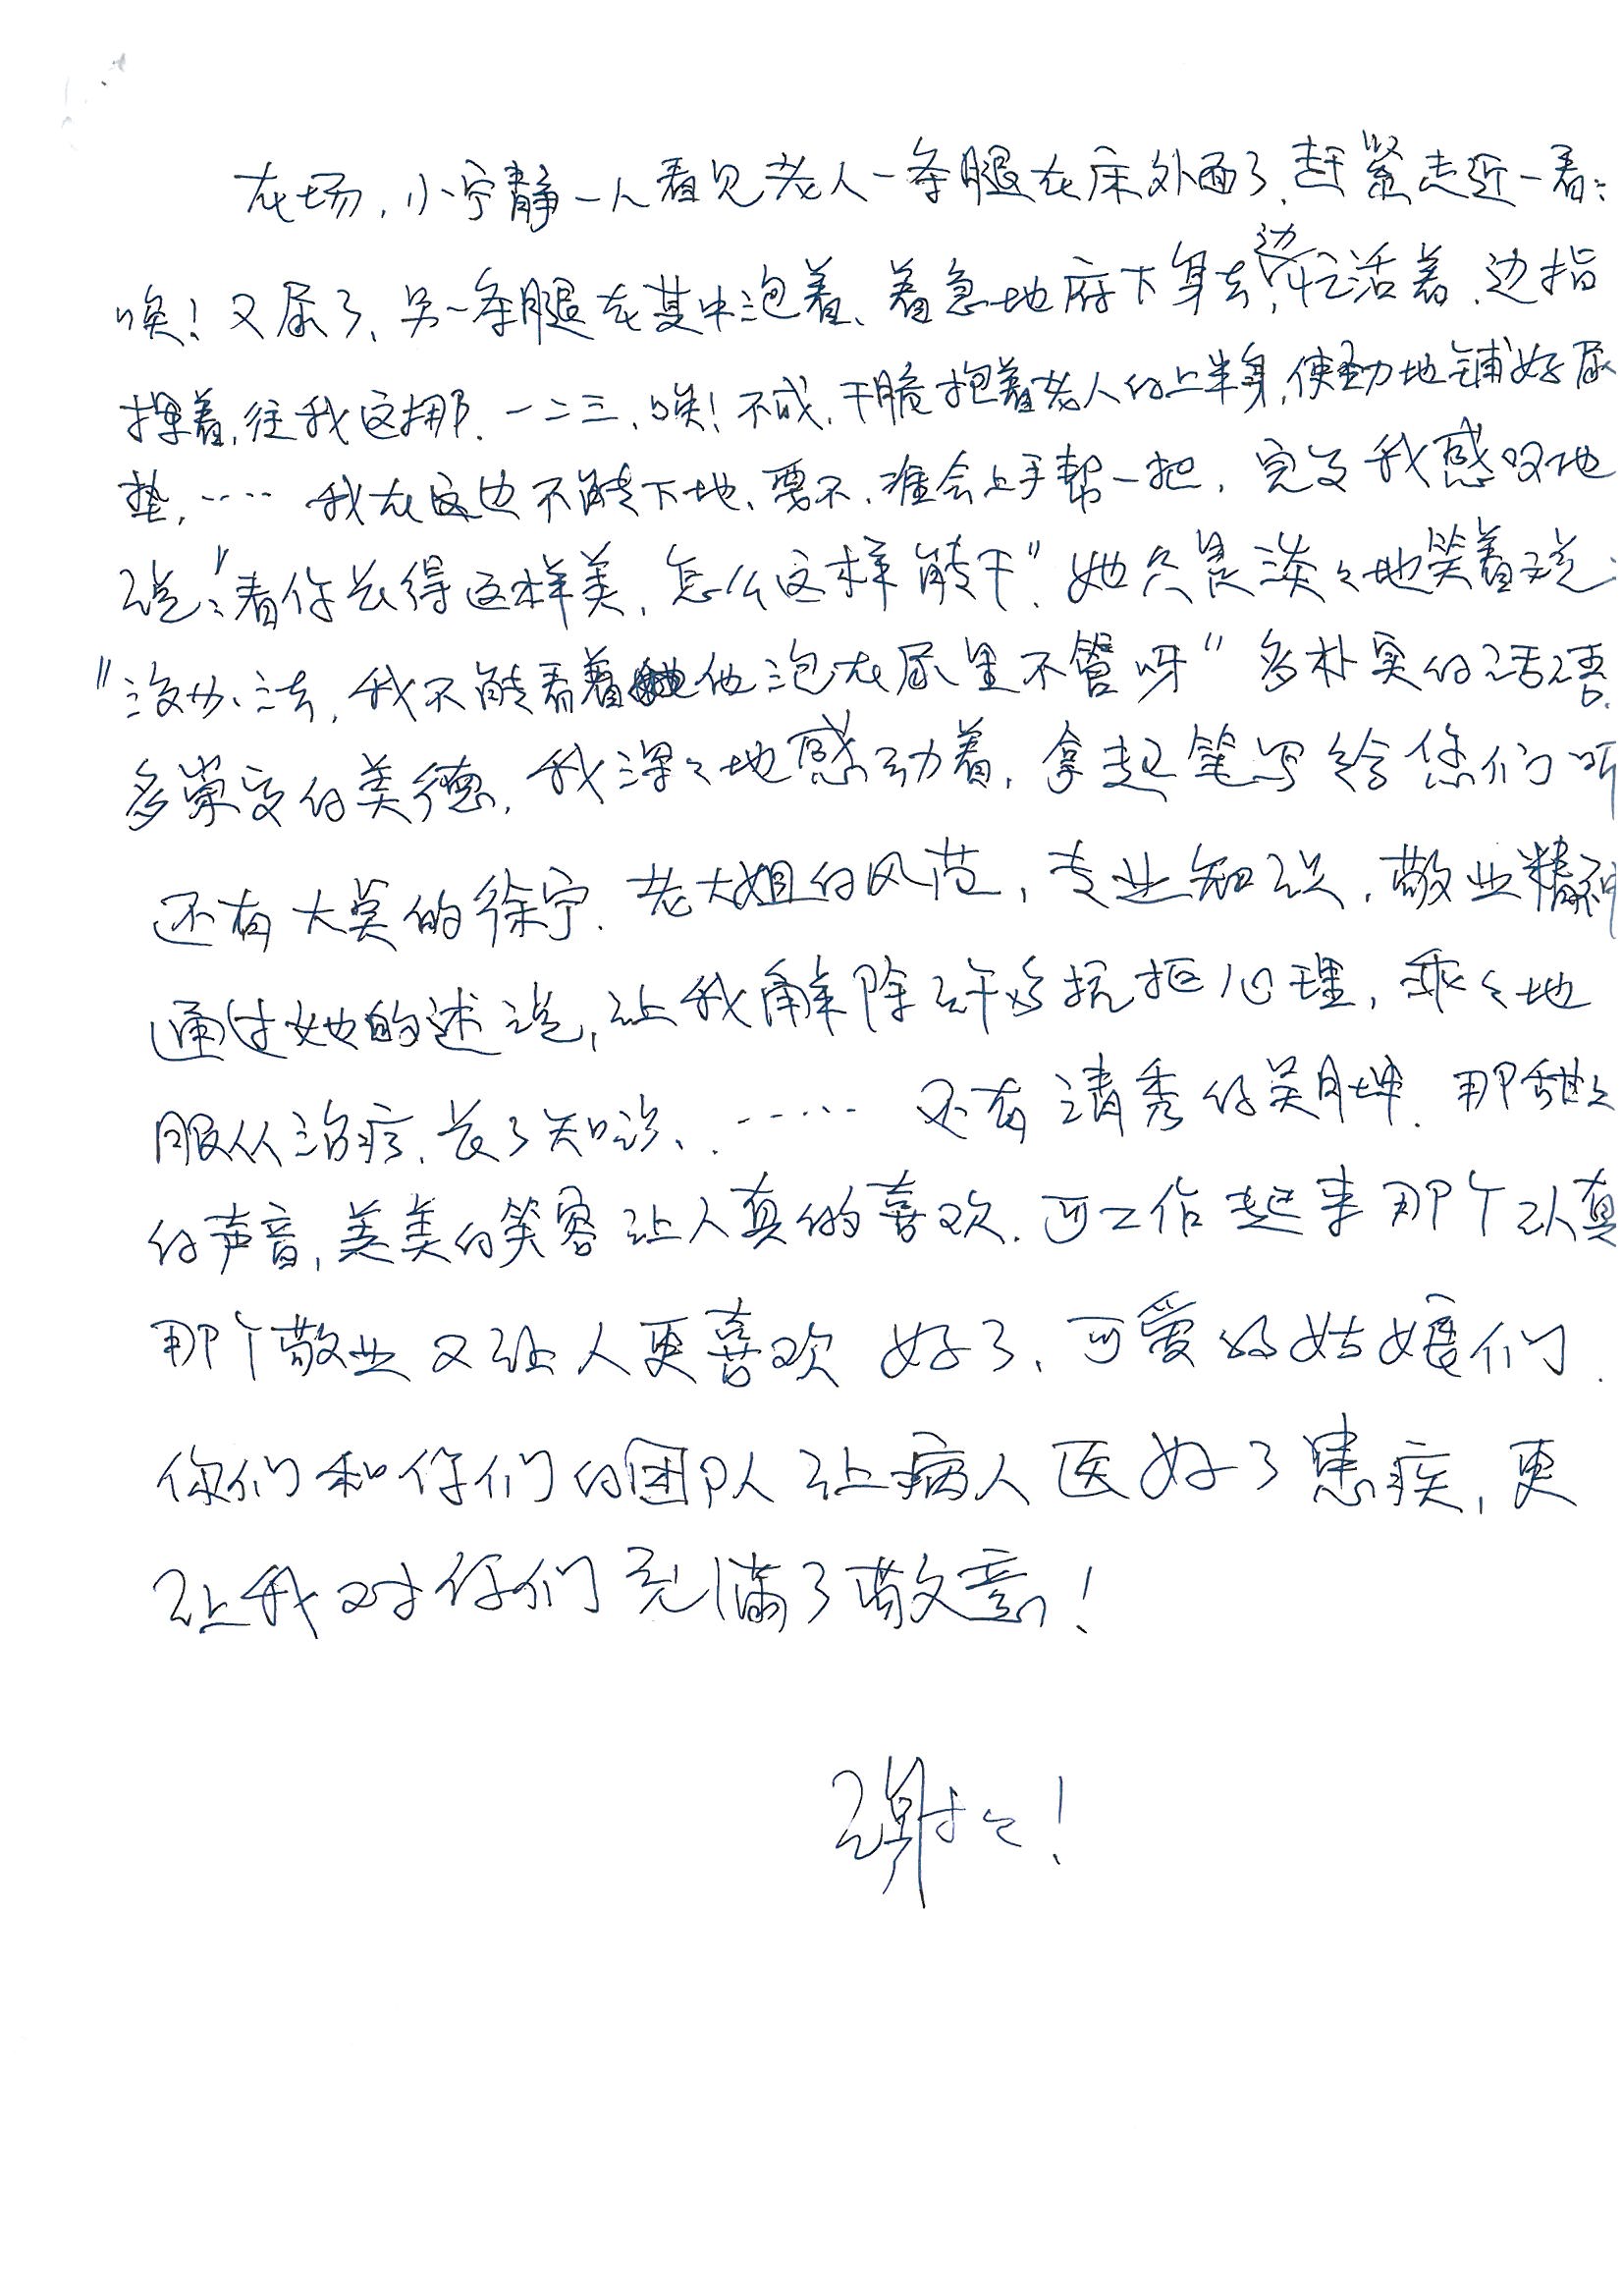 在场，小宁静一人看见老人一条腿在床外面了，赶紧走近一看：
唉！又尿了、另一条腿在其中泡着、着急地府下身去，边忙活着、边指
挥着，往我这挪、一二三、唉！不成，干脆抱着老人的上半身，使劲地铺好尿
垫，…… 我在这边不能下地、要不、准会上手帮一把，完了我感叹地
说：“看你长得这样美，怎么这样能干”，她只是淡々地笑着说：
“没办法，我不能看着他泡在尿里不管呀” 多朴实的话语.
多崇高的美德，我深々地感动着，拿起笔写给您们听
还有大美的徐宁. 老大姐的风范，专业知识，敬业精神
通过她的述说，让我解除许多抗拒心理，乖々地
服从治疗，长了知识、…… 还有清秀的吴坤. 那甜々
的声音，美美的笑容让人真的喜欢. 可工作起来那个认真
那个敬业又让人更喜欢 好了、可爱的姑娘们.
你们和你们的团队让病人医好了患疾，更
让我对你们充满了敬意！
谢々！